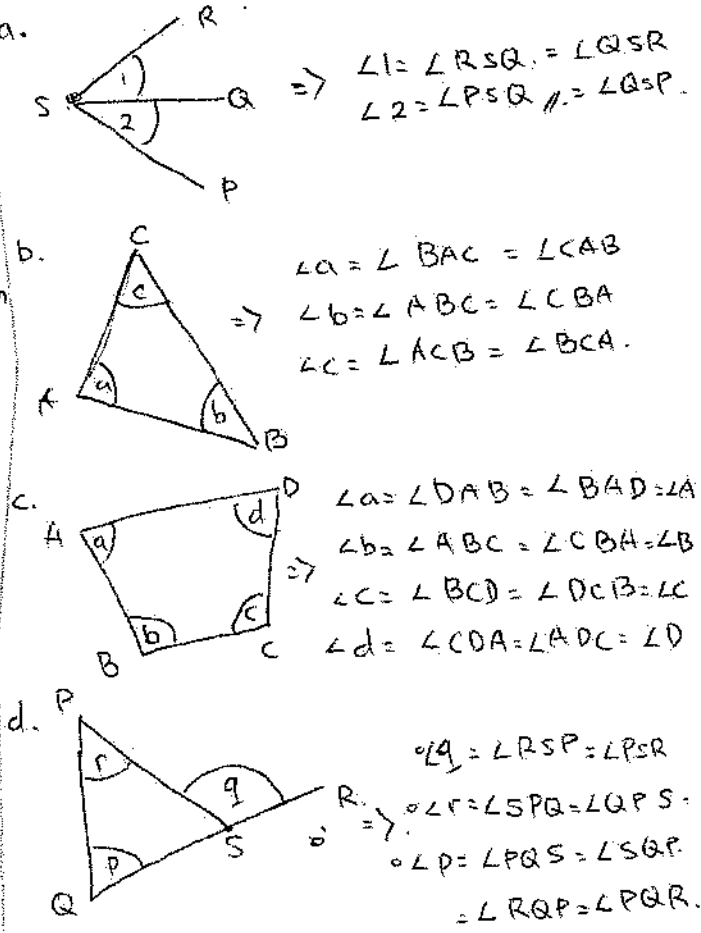 a.
R
S
1
2
Q
P
=> ∠1 = ∠RSQ = ∠QSR
∠2 = ∠PSQ // = ∠QSP.
b.
C
c
A
a
b
B
=> ∠a = ∠BAC = ∠CAB
∠b = ∠ABC = ∠CBA
∠c = ∠ACB = ∠BCA.
c.
A
D
a
d
b
c
B
C
=> ∠a = ∠DAB = ∠BAD = ∠A
∠b = ∠ABC = ∠CBA = ∠B
∠c = ∠BCD = ∠DCB = ∠C
∠d = ∠CDA = ∠ADC = ∠D
d.
P
r
q
R.
S
p
Q
=> ∠q = ∠RSP = ∠PSR
∠r = ∠SPQ = ∠QPS.
∠p = ∠PQS = ∠SQP.
= ∠RQP = ∠PQR.